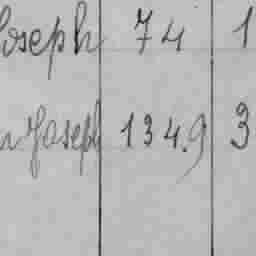 Joseph 74 1
Joseph 134.9 3